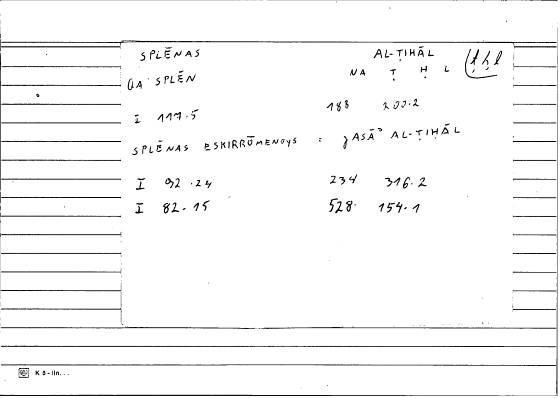 SPLĒNAS AL-ṬIḤĀL
QA SPLĒN NA Ṭ Ḥ L ṭḥl
I 117.5 188 200.2
SPLĒNAS ESKIRRŌMENOYS = ǦASĀʾ AL-ṬIḤĀL
I 92.24 234 316.2
I 82.15 528. 154.1
K 5-lin...